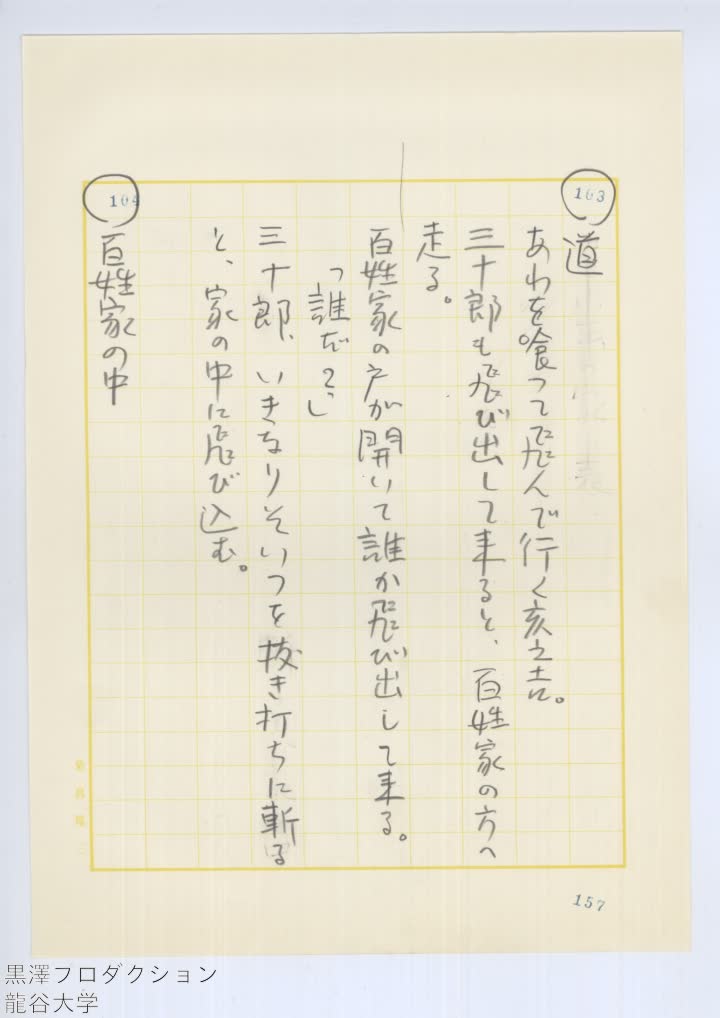 103
道
あわを喰って飛んで行く亥之吉。
三十郎も飛び出して来ると、百姓家の方へ
走る。
百姓家の戸が開いて誰か飛び出して来る。
「誰だ？」
三十郎、いきなりそいつを抜き打ちに斬る
と、家の中に飛び込む。
104
百姓家の中
157
黒澤プロダクション
龍谷大学